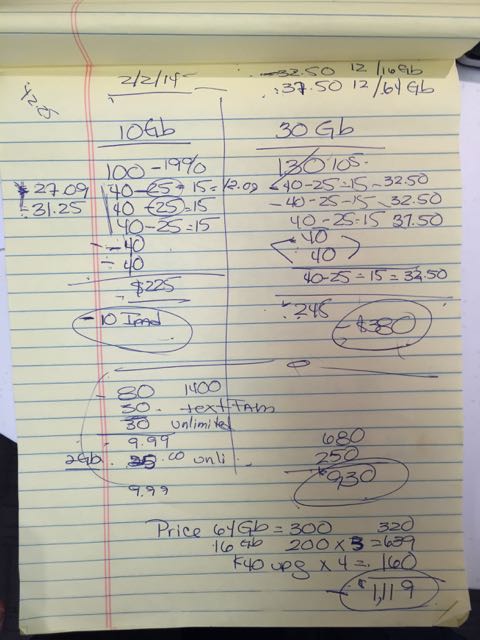 2/2/14
-32.50 12 /16Gb
37.50 12 /64Gb
10Gb
30 Gb
100-19%
130 105-
27.09
40-25=15=12.09
40-25=15-32.50
31.25
40-25=15
40-25-15-32.50
40-25=15
40-25=15 37.50
-40
40
-40
40
40-25=15=32.50
$225
245
-$380
-10
80 1400
30. text-FAM
30 unlimited
9.99
680
2Gb 35.00 unli.
250
9.99
$930
Price 64Gb = 300 320
16 Gb 200 x 3 = 639
$40 upg x 4 = 160
$1,119